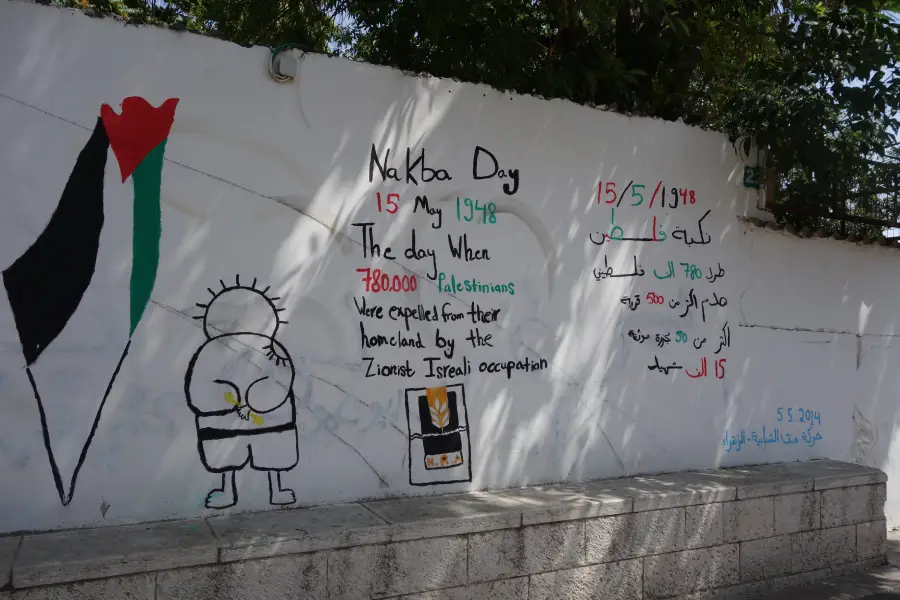 Nakba Day
15 May 1948
The day When
780.000 Palestinians
Were expelled from their
homeland by the
Zionist Isreali occupation
15/5/1948
نكبة فلسطين
طرد 780 الف فلسطيني
هدم اكثر من 500 قرية
اكثر من 50 مجزرة موثقة
15 الف شهيد
5.5.2014
حركة الشبابية - الزهراء